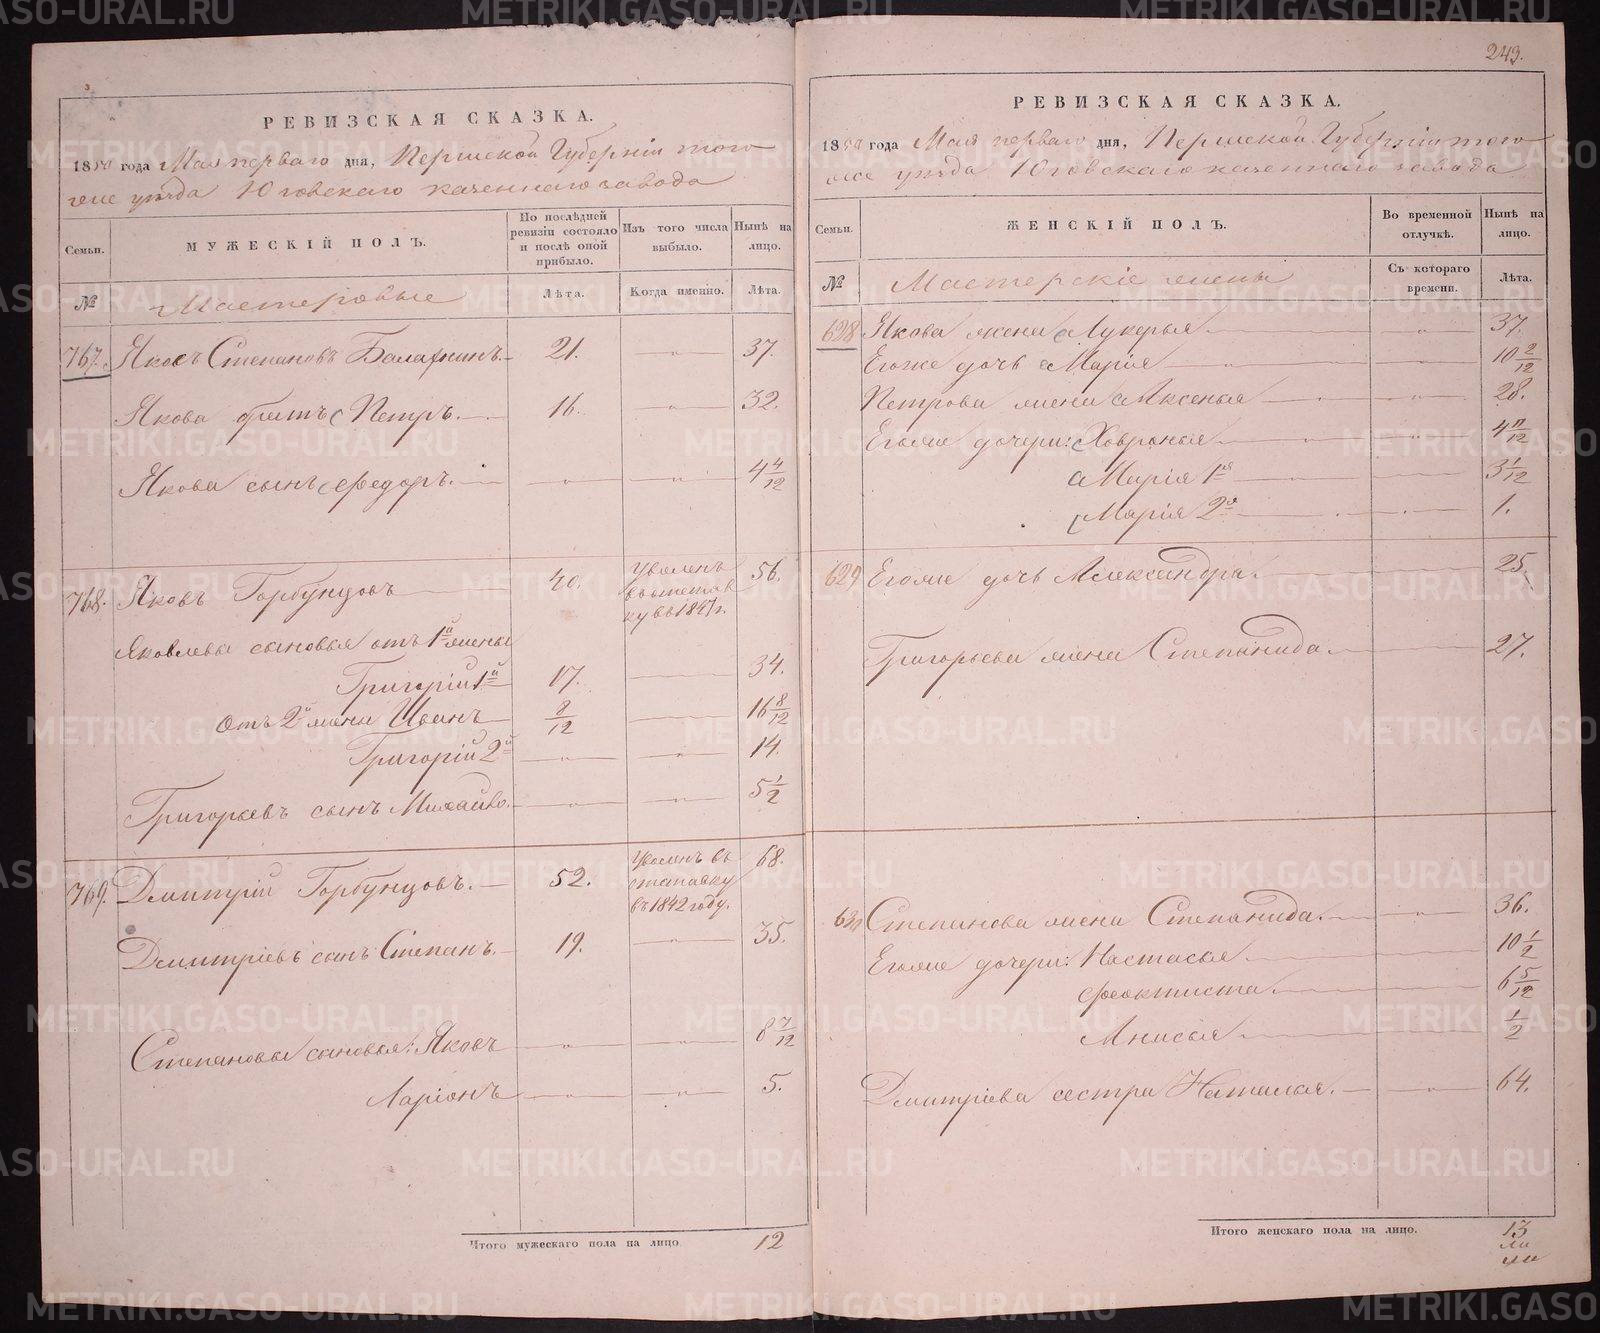 243.
РЕВИЗСКАЯ СКАЗКА.
1850 года Мая перваго дня, Пермской Губерніи того
же уѣзда Юговскаго казеннаго завода
Семьи.
МУЖЕСКІЙ ПОЛЪ.
По послѣдней ревизіи состояло и послѣ оной прибыло.
Изъ того числа выбыло.
Нынѣ на лицо.
№
Мастеровые
Лѣта.
Когда именно.
Лѣта.
767. Яковъ Степановъ Балахнинъ 21. " 37.
Якова братъ Петръ. 16. " 32.
Якова сынъ Федоръ. " " 4 4/12
768. Яковъ Горбунцовъ 40. Уволенъ въ отставку въ 1847 г. 56.
Яковлевы сыновья отъ 1й жены
Григорій 1й 17. 34.
Отъ 2й жены Иванъ 8/12 16 8/12
Григорій 2й " " 14.
Григорьевъ сынъ Михайло. " " 5 1/2
769. Дмитрій Горбунцовъ. 52. Уволенъ въ отставку въ 1842 году. 68.
Дмитріевъ сынъ Степанъ. 19. " 35.
Степановы сыновья: Яковъ " " 8 7/12
Ларіонъ " " 5.
Итого мужескаго пола на лицо 12
РЕВИЗСКАЯ СКАЗКА.
1850 года Мая перваго дня, Пермской Губерніи того
же уѣзда Юговскаго казеннаго завода
Семьи.
ЖЕНСКІЙ ПОЛЪ.
Во временной отлучкѣ.
Нынѣ на лицо.
№
Мастерскіе жены
Съ котораго времени.
Лѣта.
628 Якова жена Лукерья " 37.
Егоже дочь Марія " 10 2/12
Петрова жена Аксенья " 28.
Егоже дочери: Ховронья " 4 11/12
Марія 1я " 3 1/12
Марія 2я " 1.
629 Егоже дочь Александра. 25.
Григорьева жена Степанида " 27.
630 Степанова жена Степанида. " 36.
Егоже дочери: Настасья 10 1/2
Феоктиста 6 5/12
Анисья 1/2
Дмитріева сестра Наталья. " 64.
Итого женскаго пола на лицо. 13
METRIKI.GASO-URAL.RU